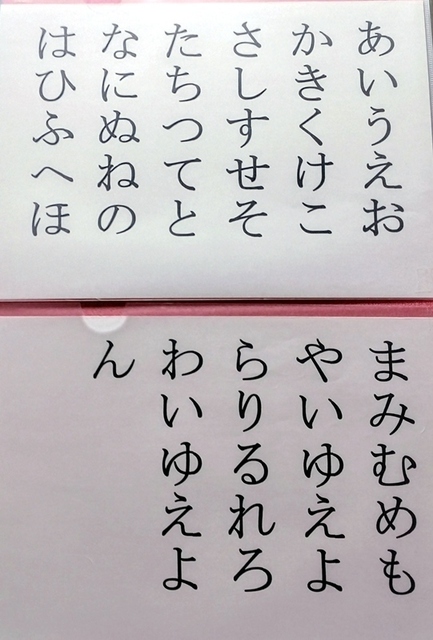 あいうえお
かきくけこ
さしすせそ
たちつてと
なにぬねの
はひふへほ
まみむめも
やいゆえよ
らりるれろ
わいゆえよ
ん